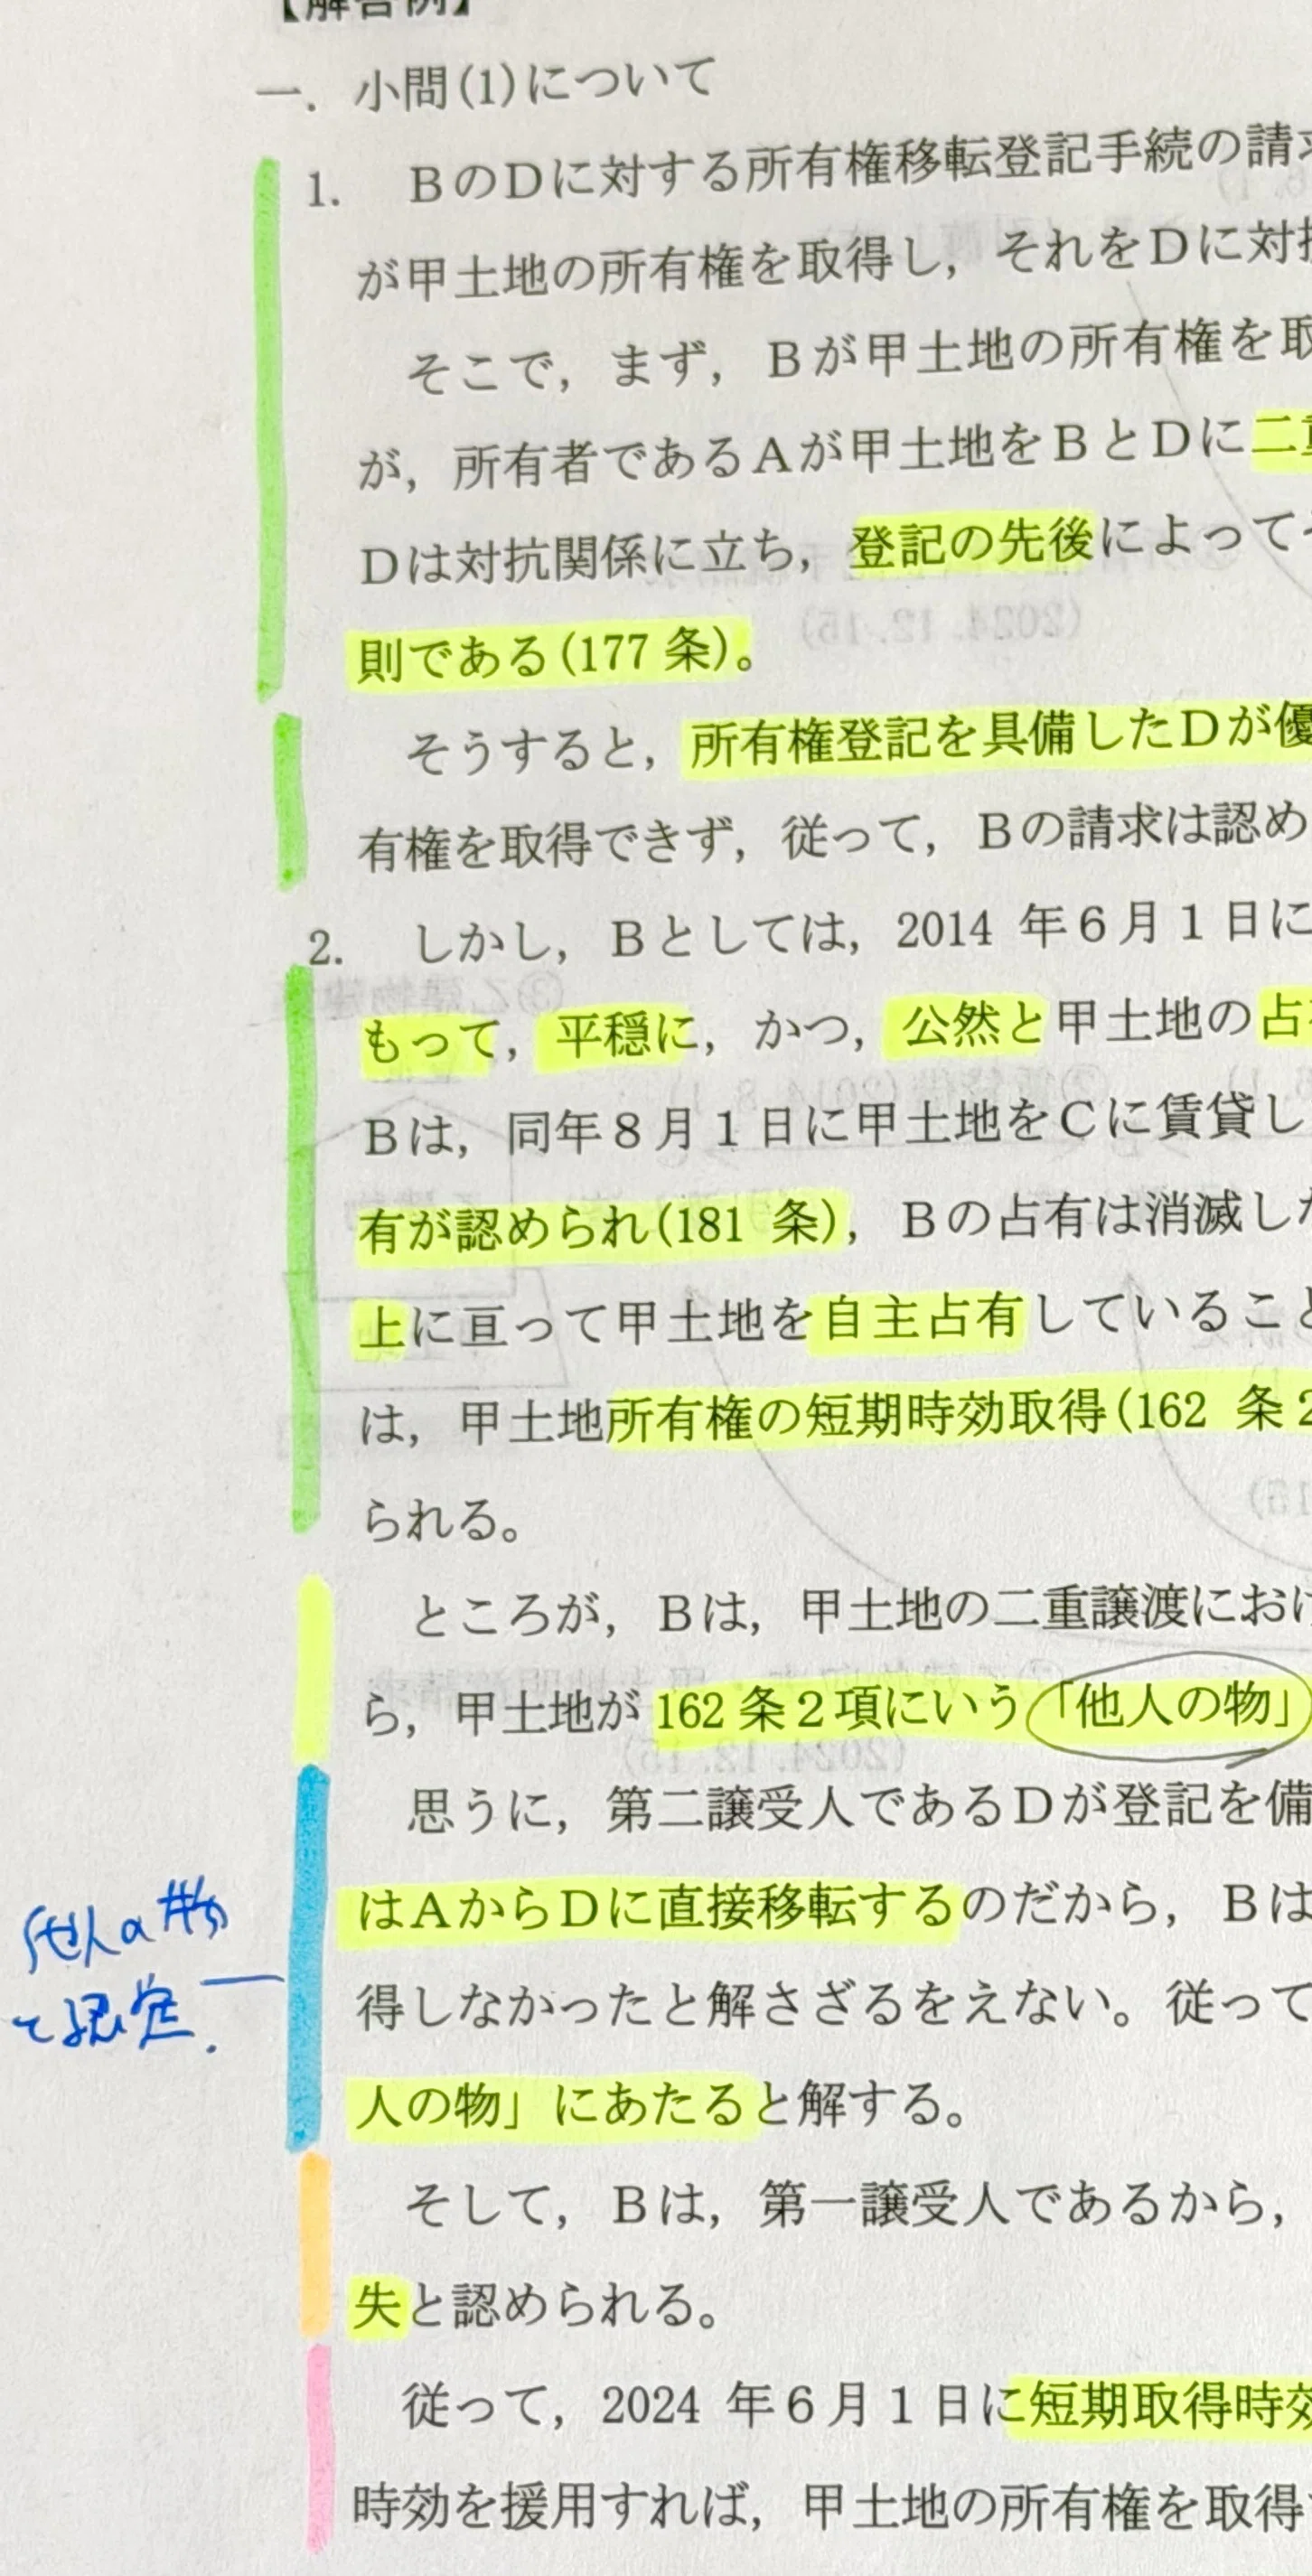 【解答例】
一．小問(1)について
1．　ＢのＤに対する所有権移転登記手続の請求
が甲土地の所有権を取得し，それをＤに対抗
そこで，まず，Ｂが甲土地の所有権を取
が，所有者であるＡが甲土地をＢとＤに二重
Ｄは対抗関係に立ち，登記の先後によって
則である(177 条)。
そうすると，所有権登記を具備したＤが優
有権を取得できず，従って，Ｂの請求は認め
2．　しかし，Ｂとしては，2014 年６月１日に
もって，平穏に，かつ，公然と甲土地の占有
Ｂは，同年８月１日に甲土地をＣに賃貸し
有が認められ(181 条)，Ｂの占有は消滅した
上に亘って甲土地を自主占有していること
は，甲土地所有権の短期時効取得(162 条２
られる。
ところが，Ｂは，甲土地の二重譲渡におけ
ら，甲土地が 162 条２項にいう「他人の物」
思うに，第二譲受人であるＤが登記を備
はＡからＤに直接移転するのだから，Ｂは
得しなかったと解さざるをえない。従って
人の物」にあたると解する。
そして，Ｂは，第一譲受人であるから，
失と認められる。
従って，2024 年６月１日に短期取得時効
時効を援用すれば，甲土地の所有権を取得
他人の物
て認定．